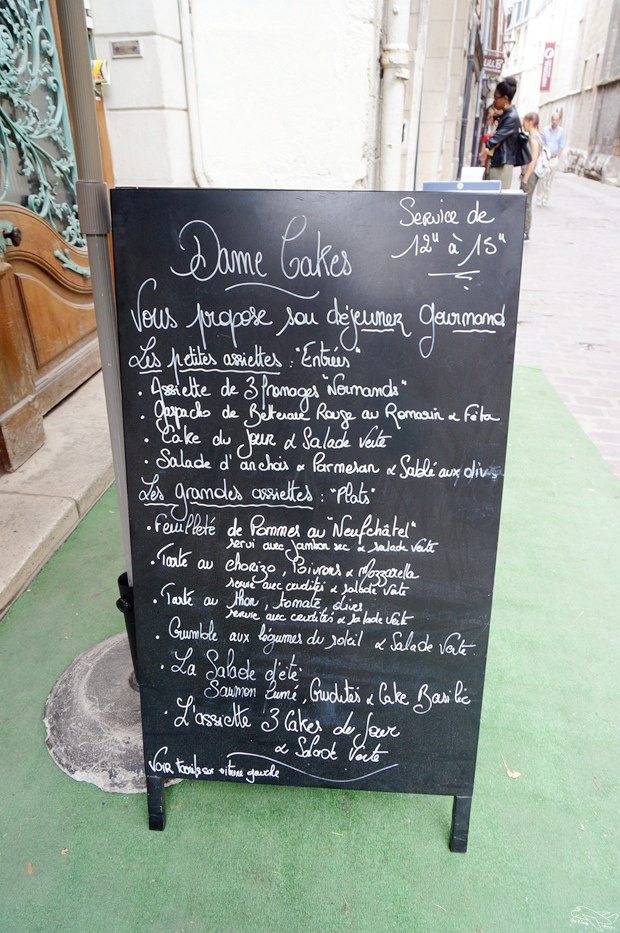 Service de
12" à 15"
Dame Cakes
Vous propose son déjeuner gourmand
Les petites assiettes : "Entrées"
• Assiette de 3 fromages "Normands"
• Gaspacho de Betterave Rouge au Romarin & Féta
• Cake du Jour & Salade Verte
• Salade d'anchois & Parmesan & Sablé aux olives
Les grandes assiettes : "Plats"
• Feuilleté de Pommes au "Neufchâtel"
servi avec Jambon sec & salade Verte
• Tarte au chorizo, Poivrons & Mozzarella
servie avec crudités & salade Verte
• Tarte au thon, tomate, olives
servie avec crudités & salade Verte
• Crumble aux légumes du soleil & Salade Verte
• La Salade d'été
Saumon fumé, Crudités & Cake Basilic
• L'assiette 3 Cakes du Jour
& Salade Verte
Voir tarifs sur vitrine gauche